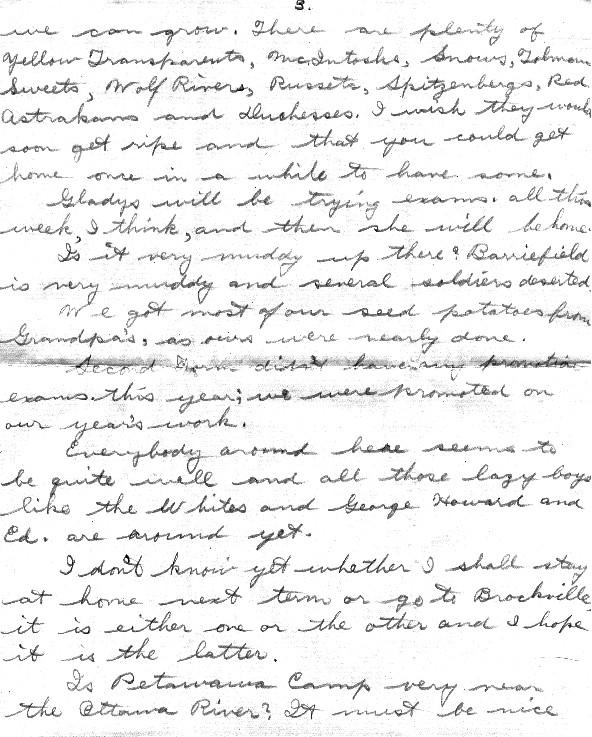 3.
we can grow. There are plenty of
Yellow Transparents, McIntoshs, Snows, Tolman
Sweets, Wolf Rivers, Russets, Spitzenbergs, Red
Astrakans and Duchesses. I wish they would
soon get ripe and that you could get
home once in a while to have some.
Gladys will be trying exams. all this
week, I think, and then she will be home.
Is it very muddy up there? Barriefield
is very muddy and several soldiers deserted.
We got most of our seed potatoes from
Grandpa's, as ours were nearly done.
Second Form didn't have any promotion
exams. this year; we were promoted on
our year's work.
Everybody around here seems to
be quite well and all those lazy boys
like the Whites and George Howard and
Ed. are around yet.
I don't know yet whether I shall stay
at home next term or go to Brockville,
it is either one or the other and I hope
it is the latter.
Is Petawawa Camp very near
the Ottawa River? It must be nice